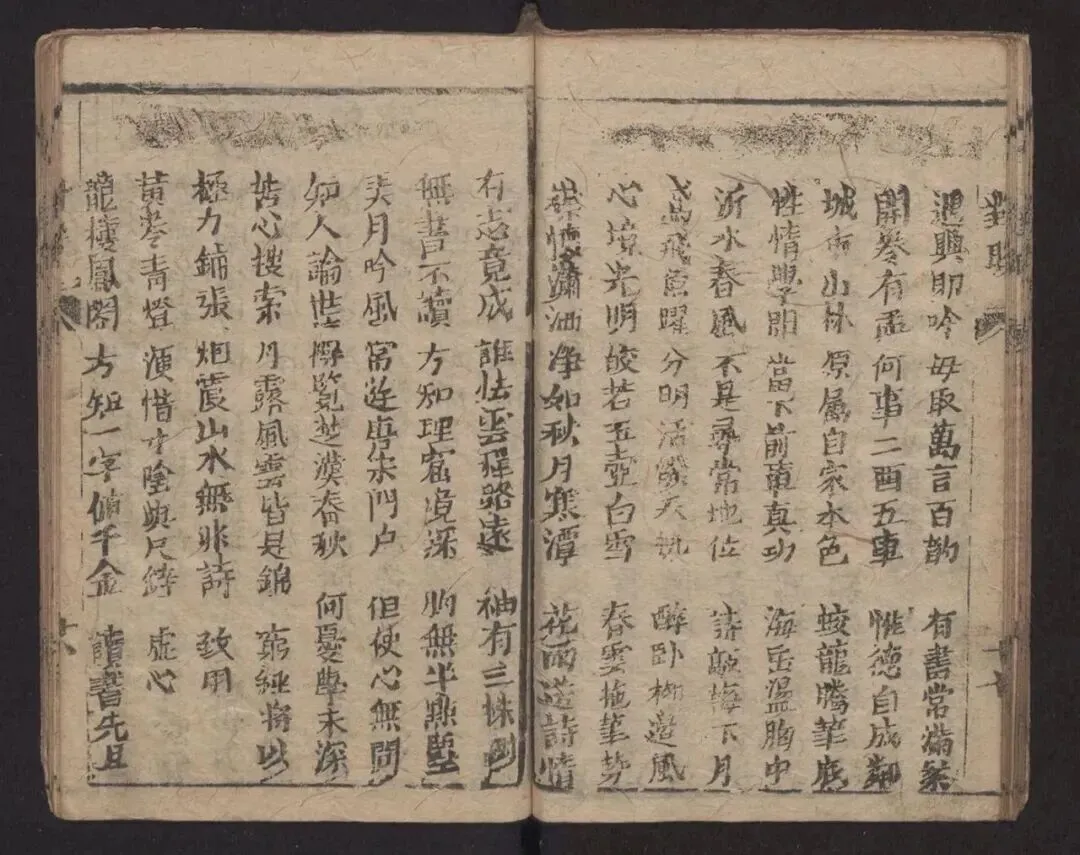 對聯
遇興即吟 毋取萬言百韵 有書常滿案
開卷有益 何事二酉五車 惟德自成鄰
城市山林 原屬自家本色 蛟龍騰筆底
性情學問 當下前車真功 海岳溫胸中
沂水春風 不是尋常地位 詩敲梅下月
鳶飛魚躍 分明活潑天機 醉卧柳邊風
心境光明 皎若玉壺白雪 春雲拖筆势
襟懷瀟洒 净如秋月寒潭 花雨送詩情
十七
有志竟成 誰怯雲程路遠 袖有三株
無書不讀 方知理窟境深 胸無半點塵
弄月吟風 常遊唐宋門户 但使心無間
知人論世 博覽楚漢春秋 何憂學未深
苦心搜索 月露風雲皆是錦 窮經將以
極力鋪張 烟霞山水無非詩 致用
黄卷青燈 須惜寸陰與尺璧 虛心
龍樓鳳閣 方知一字值千金 讀書先且
十八